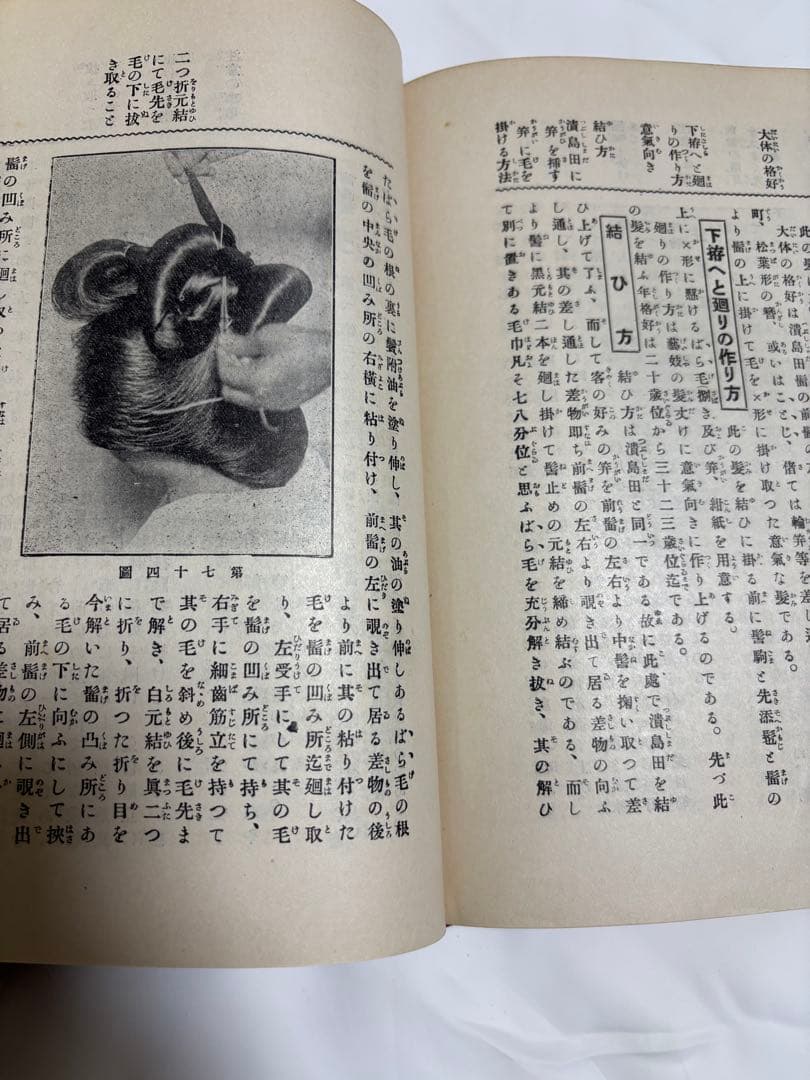 大体の格好
下拵へと廻
りの作り方
意氣向き
結ひ方
潰島田に
笄を挿す
笄に毛を
掛ける方法
大体の格好は潰島田髷の前髷の
町、松葉形の簪、或いはことじ、偖ては輪笄等を差し
より髷の上に掛けて毛を×形に掛け取つた意氣な髮である。
下拵へと廻りの作り方
此の髮を結ひに掛る前に髻駒と先添髢と髷の
上に×形に懸けるばら毛捌き及び笄、紺紙を用意する。
廻りの作り方は藝妓の髮丈けに意氣向きに作り上げるのである。先づ此
の髮を結ふ年格好は二十歳位から三十二三歳位迄である。
結ひ方
結ひ方は潰島田と同一である故に此處で潰島田を結
ひ上げて了ふ、而して客の好みの笄を前髷の左右より中髻を掬い取つて差
し通し、其の差し通した差物即ち前髷の左右より覗き出て居る差物の向ふ
より髻に黒元結二本を廻し掛けて髻止めの元結を締め結ぶのである、而し
て別に置きある毛巾凡そ七八分位と思ふばら毛を充分解き抜き、其の解ひ
二つ折元結
にて毛先を
毛の下に拔
き取ること
たばら毛の根の裏に鬢附油を塗り伸し、其の油の塗り伸しあるばら毛の根
を髷の中央の凹み所の右横に粘り付け、前髷の左に覗き出て居る差物の後
第七十四圖
より前に其の粘り付けた
毛を髷の凹み所迄廻し取
り、左受手にして其の毛
を髷の凹み所にて持ち、
右手に細齒筋立を持つて
其の毛を斜め後に毛先ま
で解き、白元結を眞二つ
に折り、折つた折り目を
今解いた髷の凸み所にあ
る毛の下に向ふにして挾
み、前髷の左側に覗き出
て居る差物に廻し
髷の凹み所に廻し